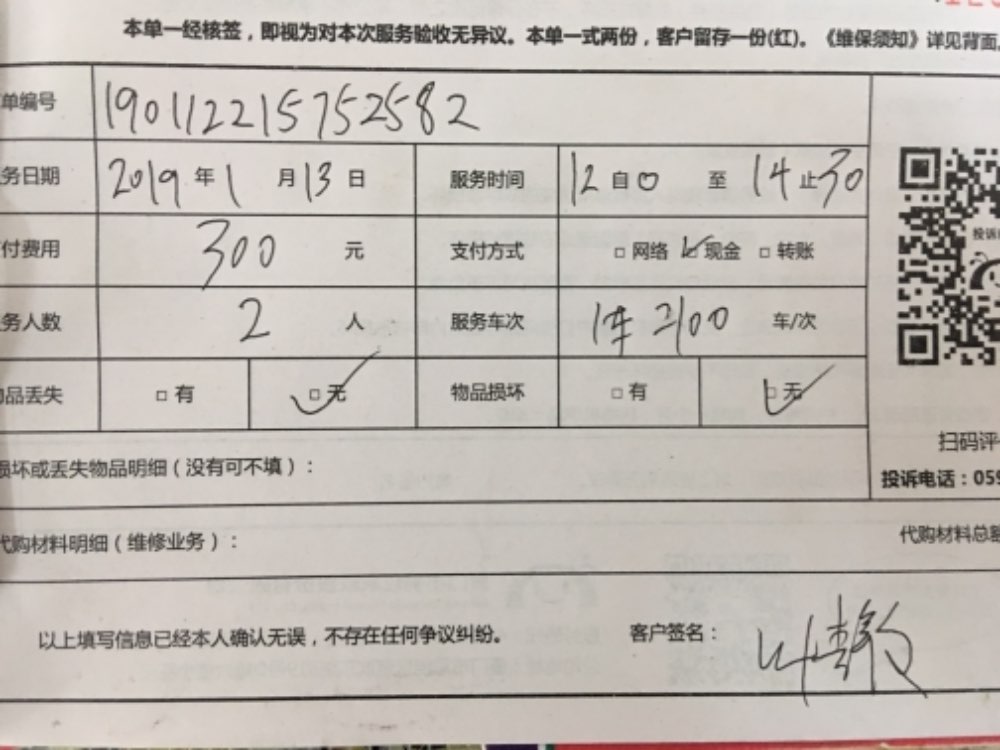 本单一经核签，即视为对本次服务验收无异议。本单一式两份，客户留存一份(红)。《维保须知》详见背面。
单编号 190112215752582
务日期 2019 年 1 月 13 日 服务时间 12 自 0 至 14 止 30
付费用 300 元 支付方式 □ 网络 ☑ 现金 □ 转账
务人数 2 人 服务车次 1车 车/次
品丢失 □ 有 ☑ 无 物品损坏 □ 有 ☑ 无
投诉
扫码评
损坏或丢失物品明细（没有可不填）：
投诉电话：059
代购材料明细（维修业务）：
代购材料总额
以上填写信息已经本人确认无误，不存在任何争议纠纷。 客户签名：